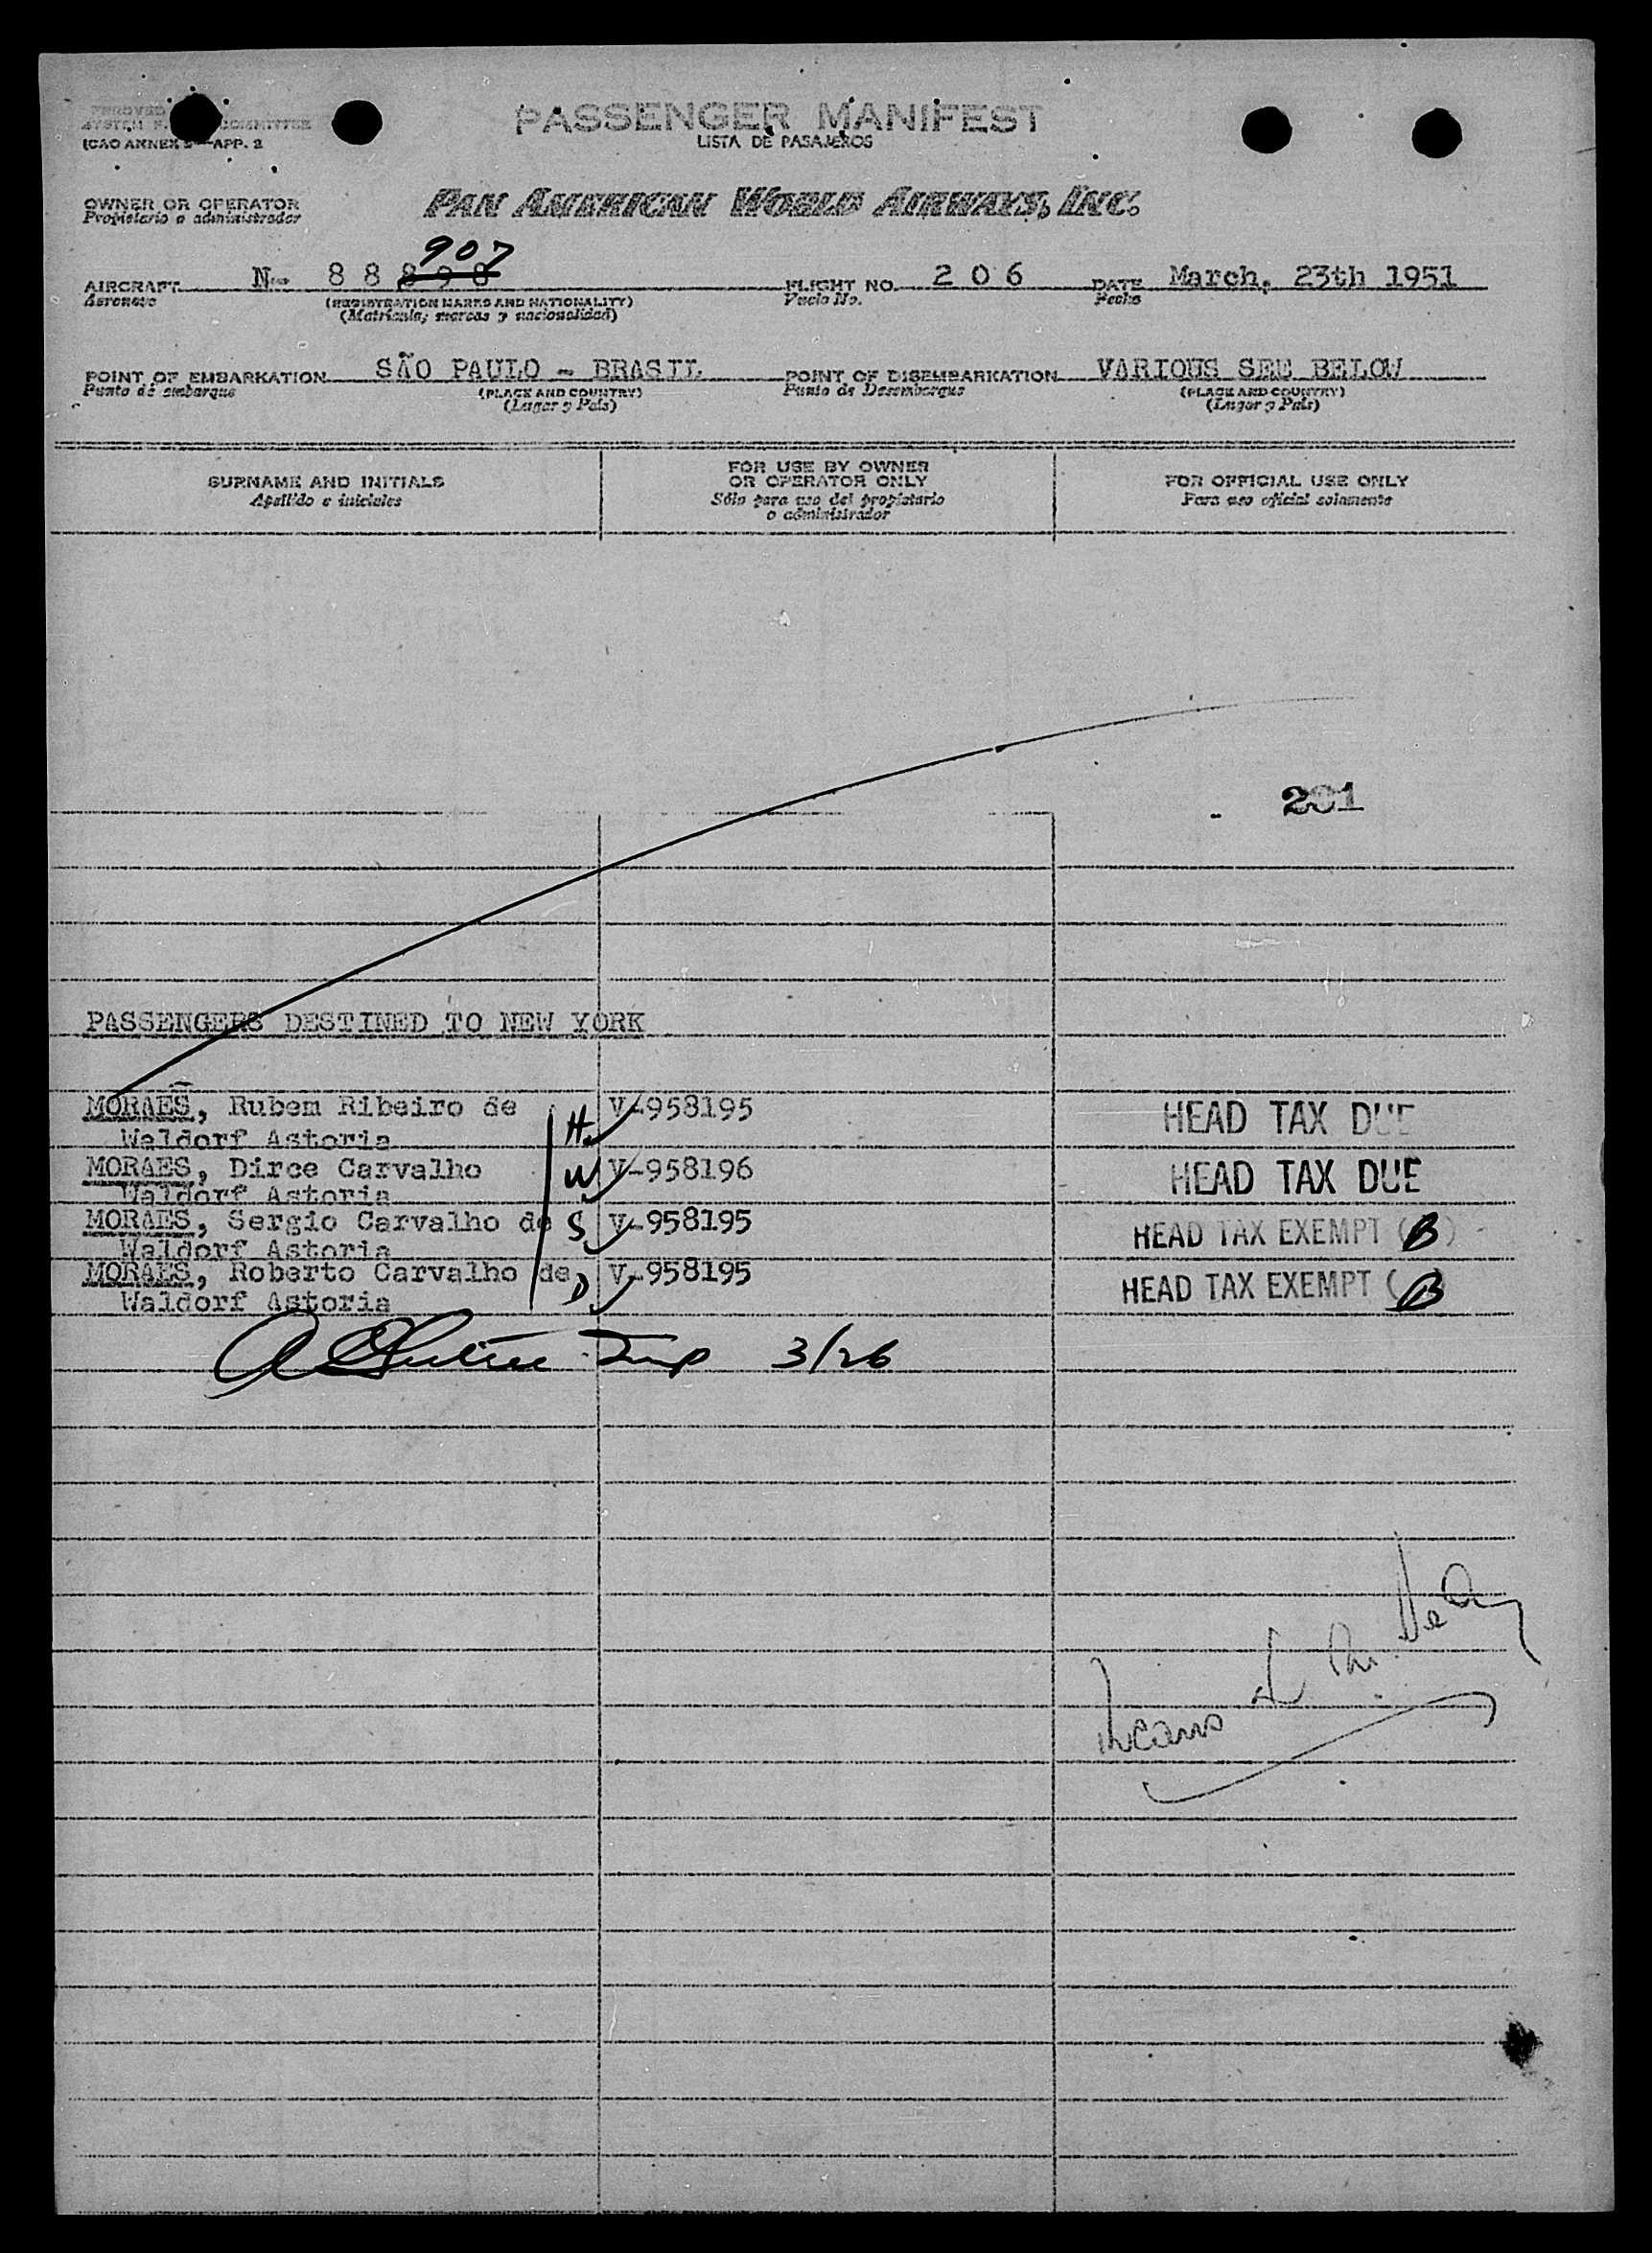 ICAO ANNEX 9 APP. 2
PASSENGER MANIFEST
LISTA DE PASAJEROS
OWNER OR OPERATOR
Propietario o administrador
PAN AMERICAN WORLD AIRWAYS, INC.
907
AIRCRAFT N- 8 8 8 9 8 FLIGHT NO. 2 0 6 DATE March, 23th 1951
Aeronave (REGISTRATION MARKS AND NATIONALITY) Vuelo No. Fecha
(Matrícula; marcas y nacionalidad)
POINT OF EMBARKATION SÃO PAULO - BRASIL POINT OF DISEMBARKATION VARIOUS SEE BELOW
Punto de embarque (PLACE AND COUNTRY) Punto de Desembarque (PLACE AND COUNTRY)
(Lugar y País) (Lugar y País)
SURNAME AND INITIALS FOR USE BY OWNER OR OPERATOR ONLY FOR OFFICIAL USE ONLY
Apellido e iniciales Sólo para uso del propietario o administrador Para uso oficial solamente
201
PASSENGERS DESTINED TO NEW YORK
MORAES, Rubem Ribeiro de H. V-958195 HEAD TAX DUE
Waldorf Astoria
MORAES, Dirce Carvalho W V-958196 HEAD TAX DUE
Waldorf Astoria
MORAES, Sergio Carvalho de S V-958195 HEAD TAX EXEMPT (B)
Waldorf Astoria
MORAES, Roberto Carvalho de D V-958195 HEAD TAX EXEMPT (B)
Waldorf Astoria
3/26